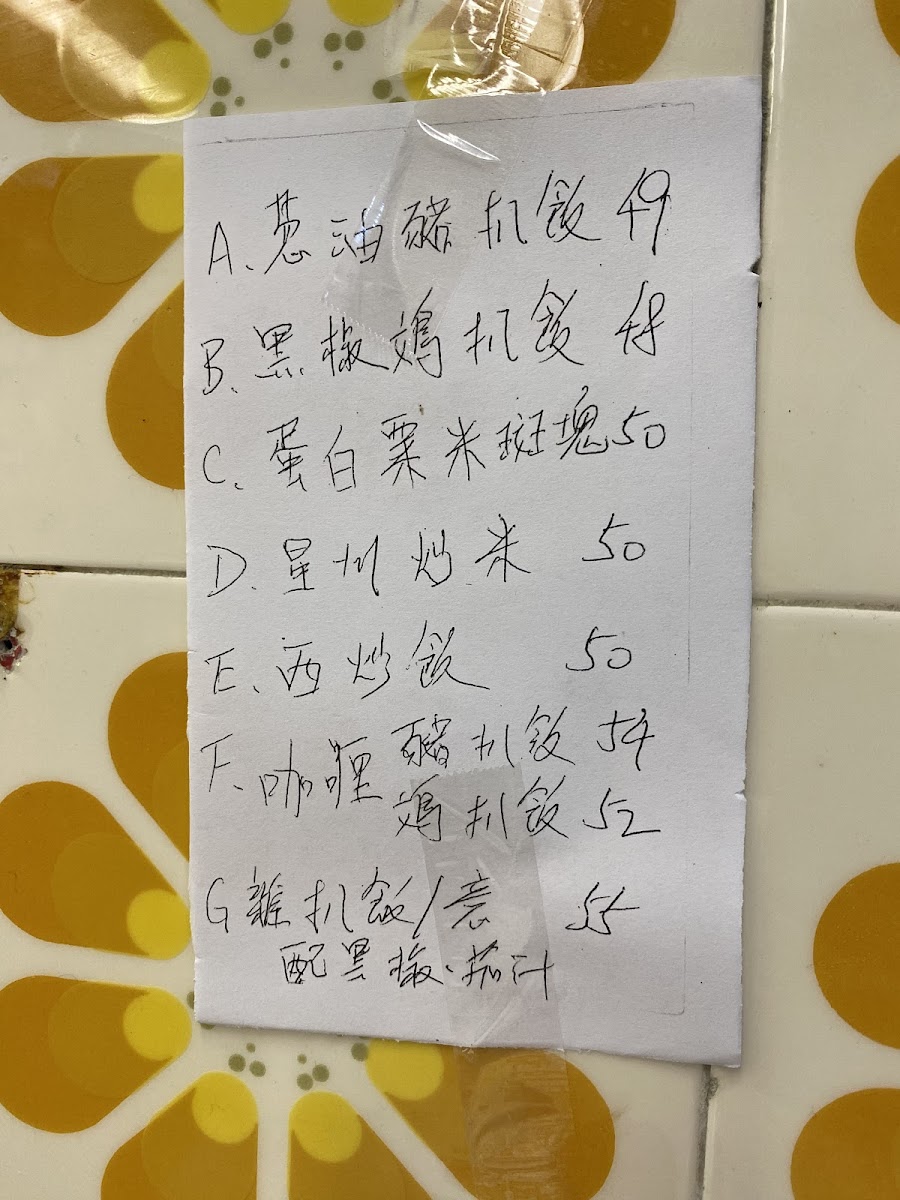 A. 葱油豬扒飯 49
B. 黑椒鷄扒飯 48
C. 蛋白粟米斑塊 50
D. 星州炒米 50
E. 西炒飯 50
F. 咖喱 豬扒飯 54
鷄扒飯 52
G 雜扒飯/意 55
配黑椒.茄汁